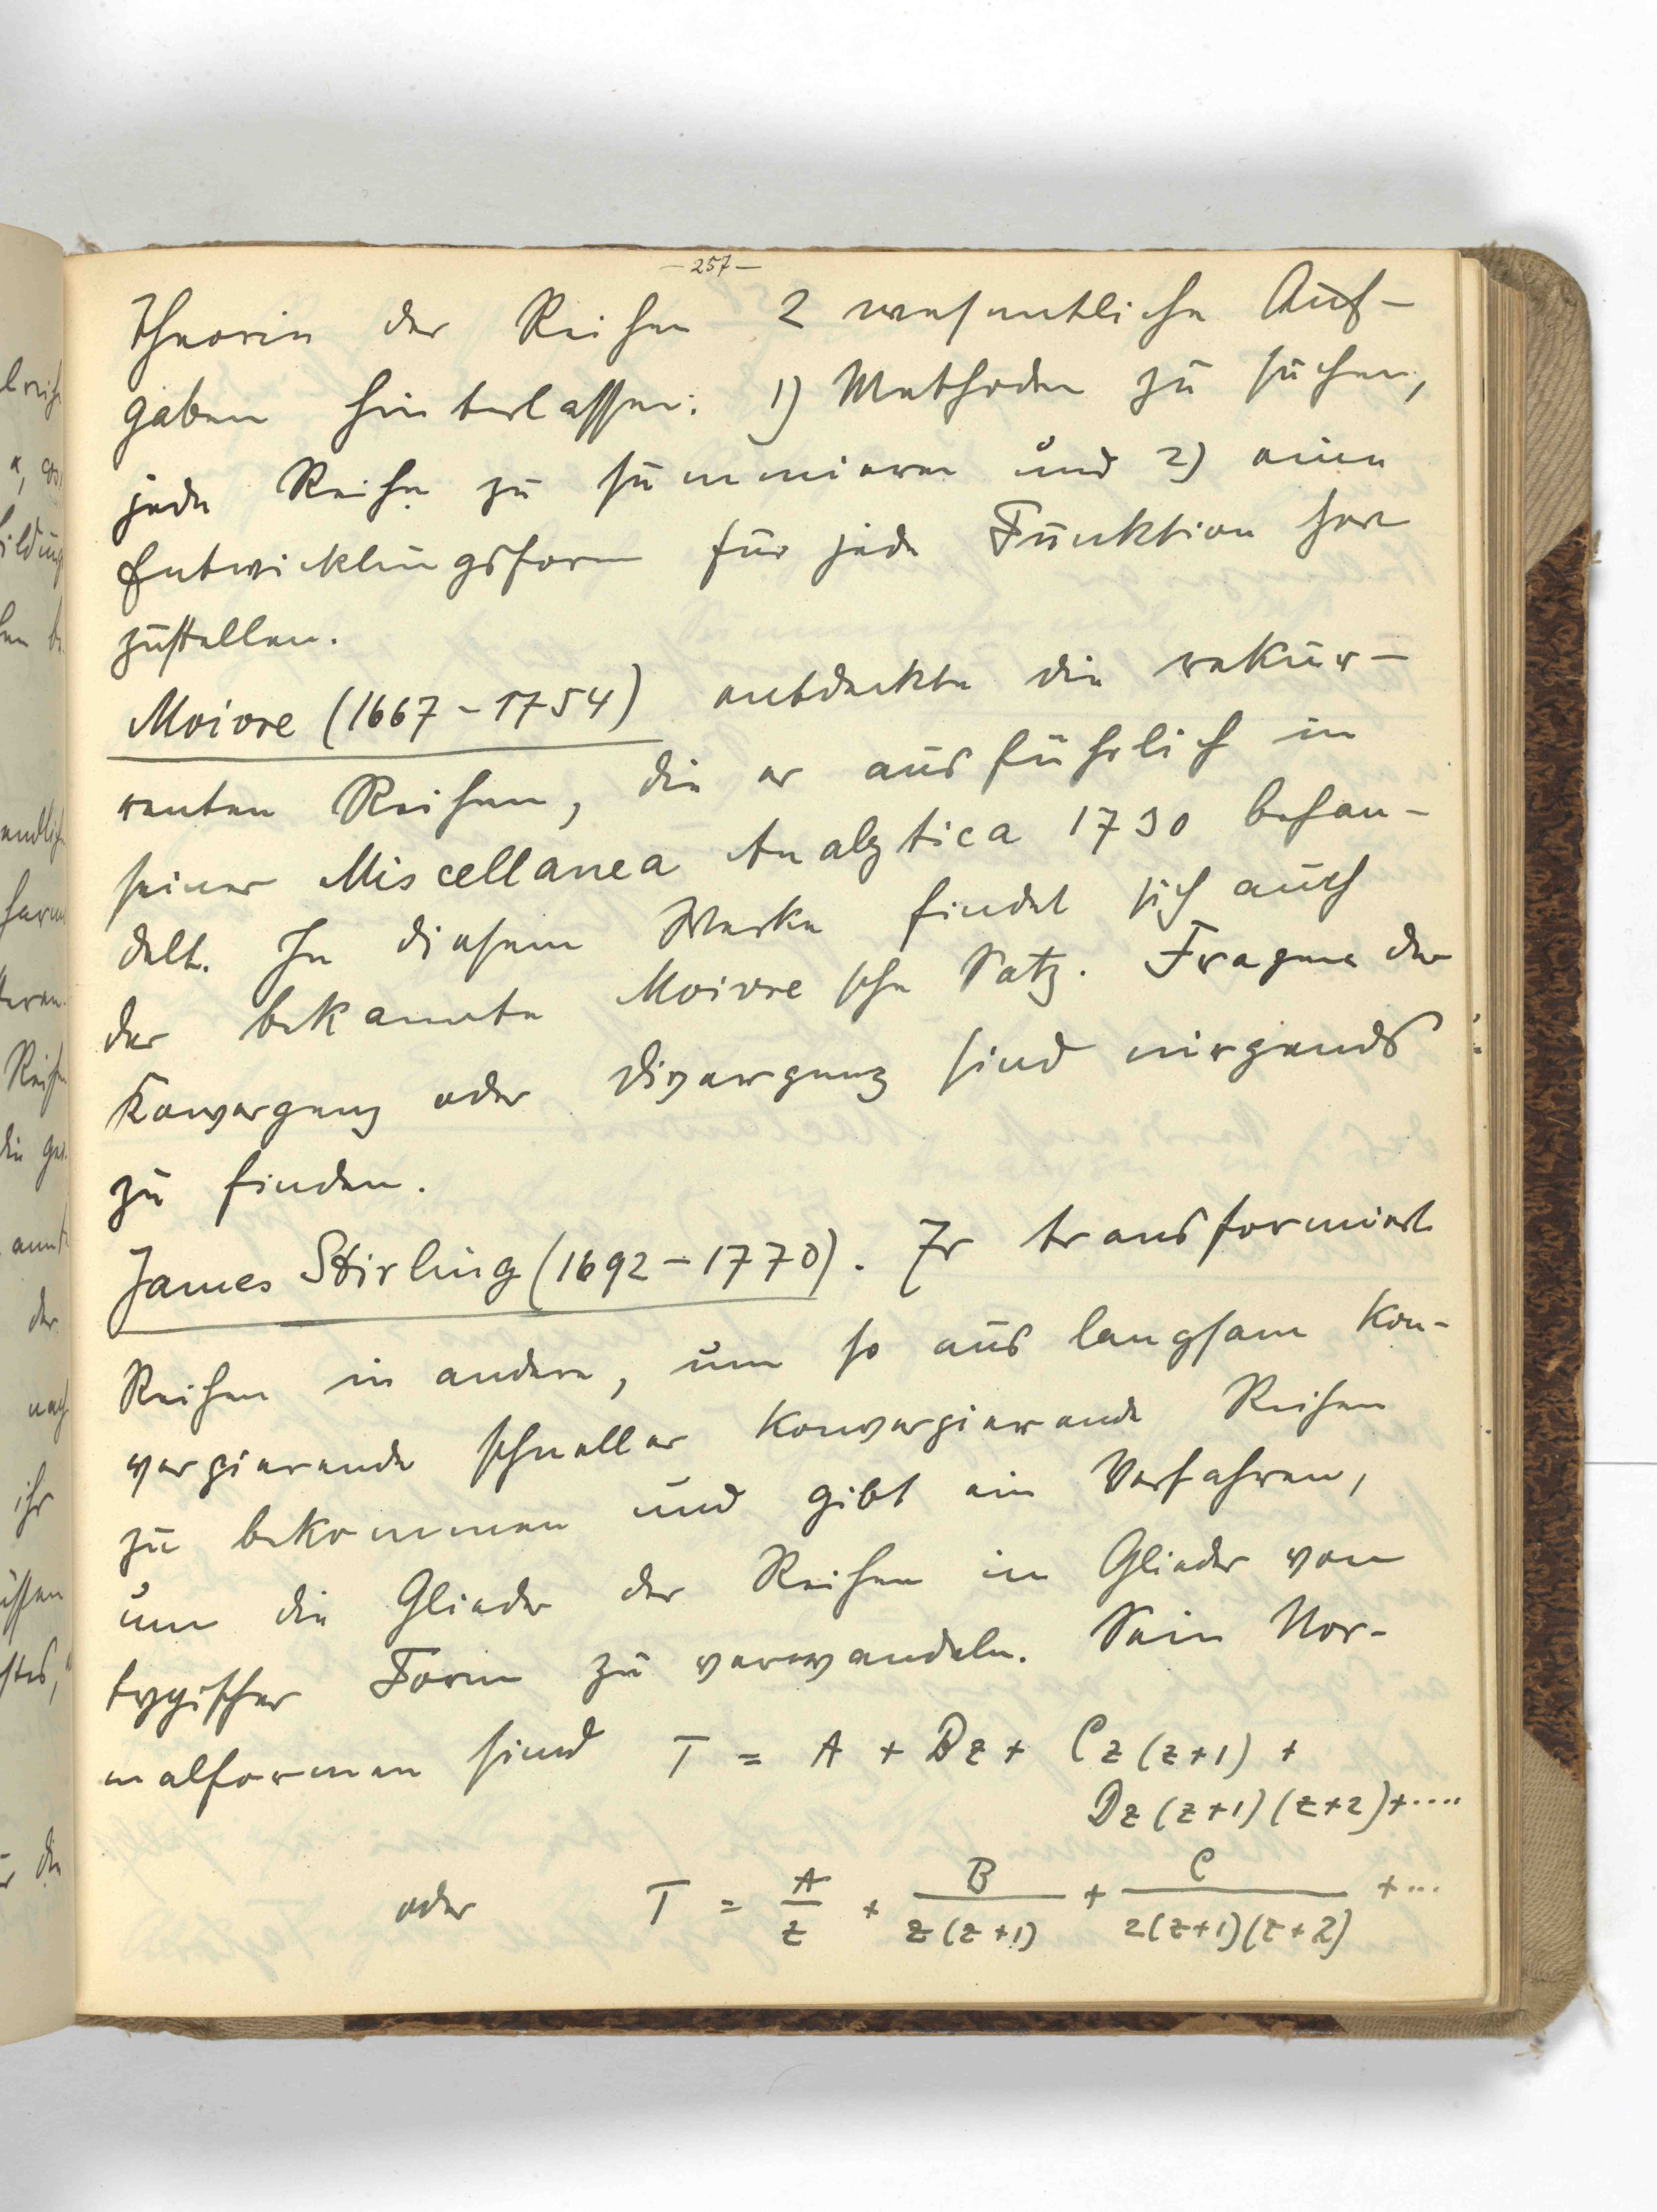 - 257 -
Theorie der Reihen 2 wesentliche Auf-
gaben hinterlassen: 1) Methoden zu suchen,
jede Reihe zu summieren und 2) eine
Entwicklungsform für jede Funktion her
zustellen.
Moivre (1667 - 1754) entdeckte die rekur-
renten Reihen, die er ausführlich in
seiner Miscellanea Analytica 1730 behan-
delt. In diesem Werke findet sich auch
der bekannte Moivresche Satz. Fragen der
Konvergenz oder Divergenz sind nirgends
zu finden.
James Stirling (1692 - 1770). Er transformiert
Reihen in andere, um so aus langsam kon-
vergierende schneller konvergierende Reihen
zu bekommen und gibt ein Verfahren,
um die Glieder der Reihen in Glieder von
typischer Form zu verwandeln. Sein Nor-
malformen sind T = A + Bz + Cz(z+1) +
Dz(z+1)(z+2)+....
oder T = A/z + B/z(z+1) + C/z(z+1)(z+2) +...